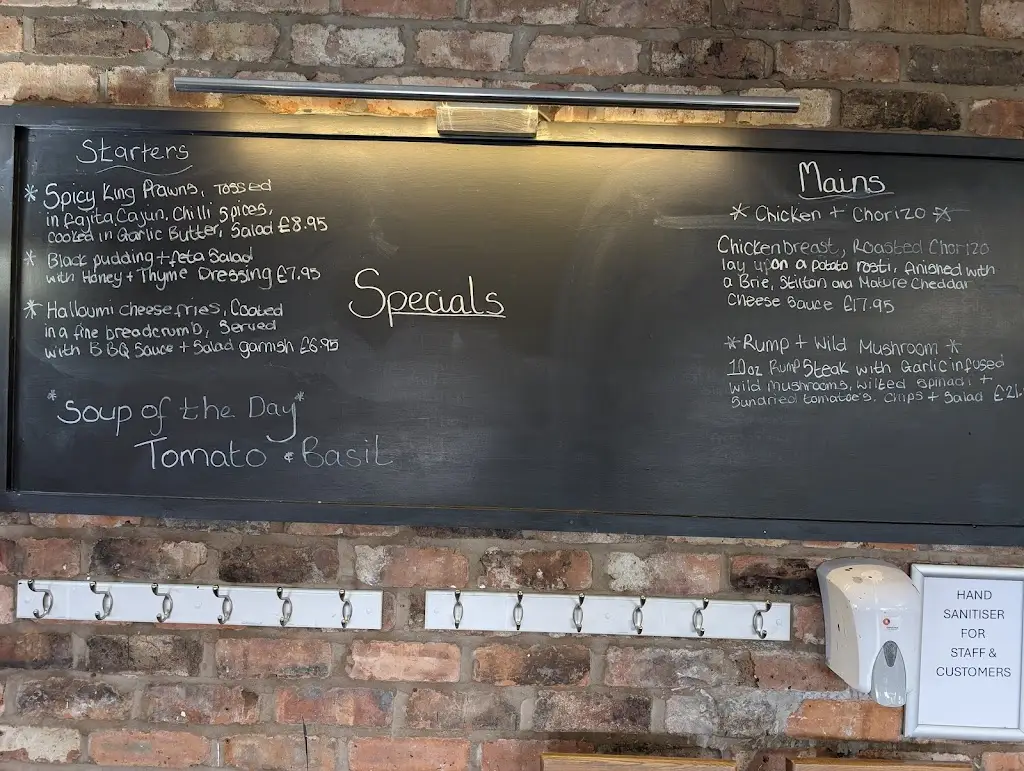 Starters
* Spicy King Prawns, Tossed
in fajita Cajun, Chilli Spices,
cooked in Garlic Butter, Salad £8.95
* Black pudding + feta Salad
with Honey + Thyme Dressing £7.95
* Halloumi cheese fries, Coated
in a fine breadcrumb, Served
with BBQ Sauce + Salad garnish £6.95
*Soup of the Day*
Tomato & Basil
Specials
Mains
* Chicken + Chorizo *
Chicken breast, Roasted Chorizo
lay upon a potato rosti, finished with
a Brie, Stilton and Mature Cheddar
Cheese Sauce £17.95
* Rump + Wild Mushroom *
10oz Rump Steak with Garlic infused
wild mushrooms, wilted Spinach +
Sundried tomatoes, chips + Salad
HAND
SANITISER
FOR
STAFF &
CUSTOMERS